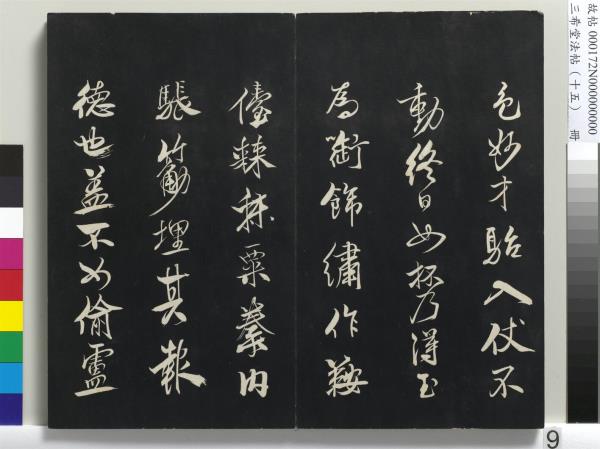 色妙才駘入仗不
動終日如乃得玉
為銜飾繡作鞍
儓棘秣粟豢肉
脹筋埋其報
德也蓋不如偷盧
故帖 000172N000000000
三希堂法帖(十五) 冊
9